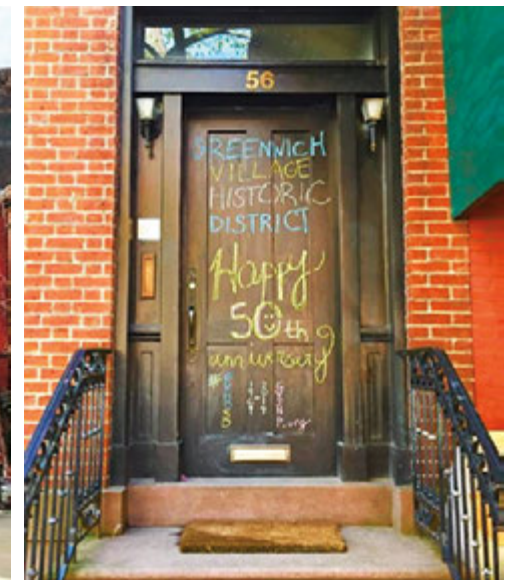 56
GREENWICH
VILLAGE
HISTORIC
DISTRICT
Happy
50th
anniversary